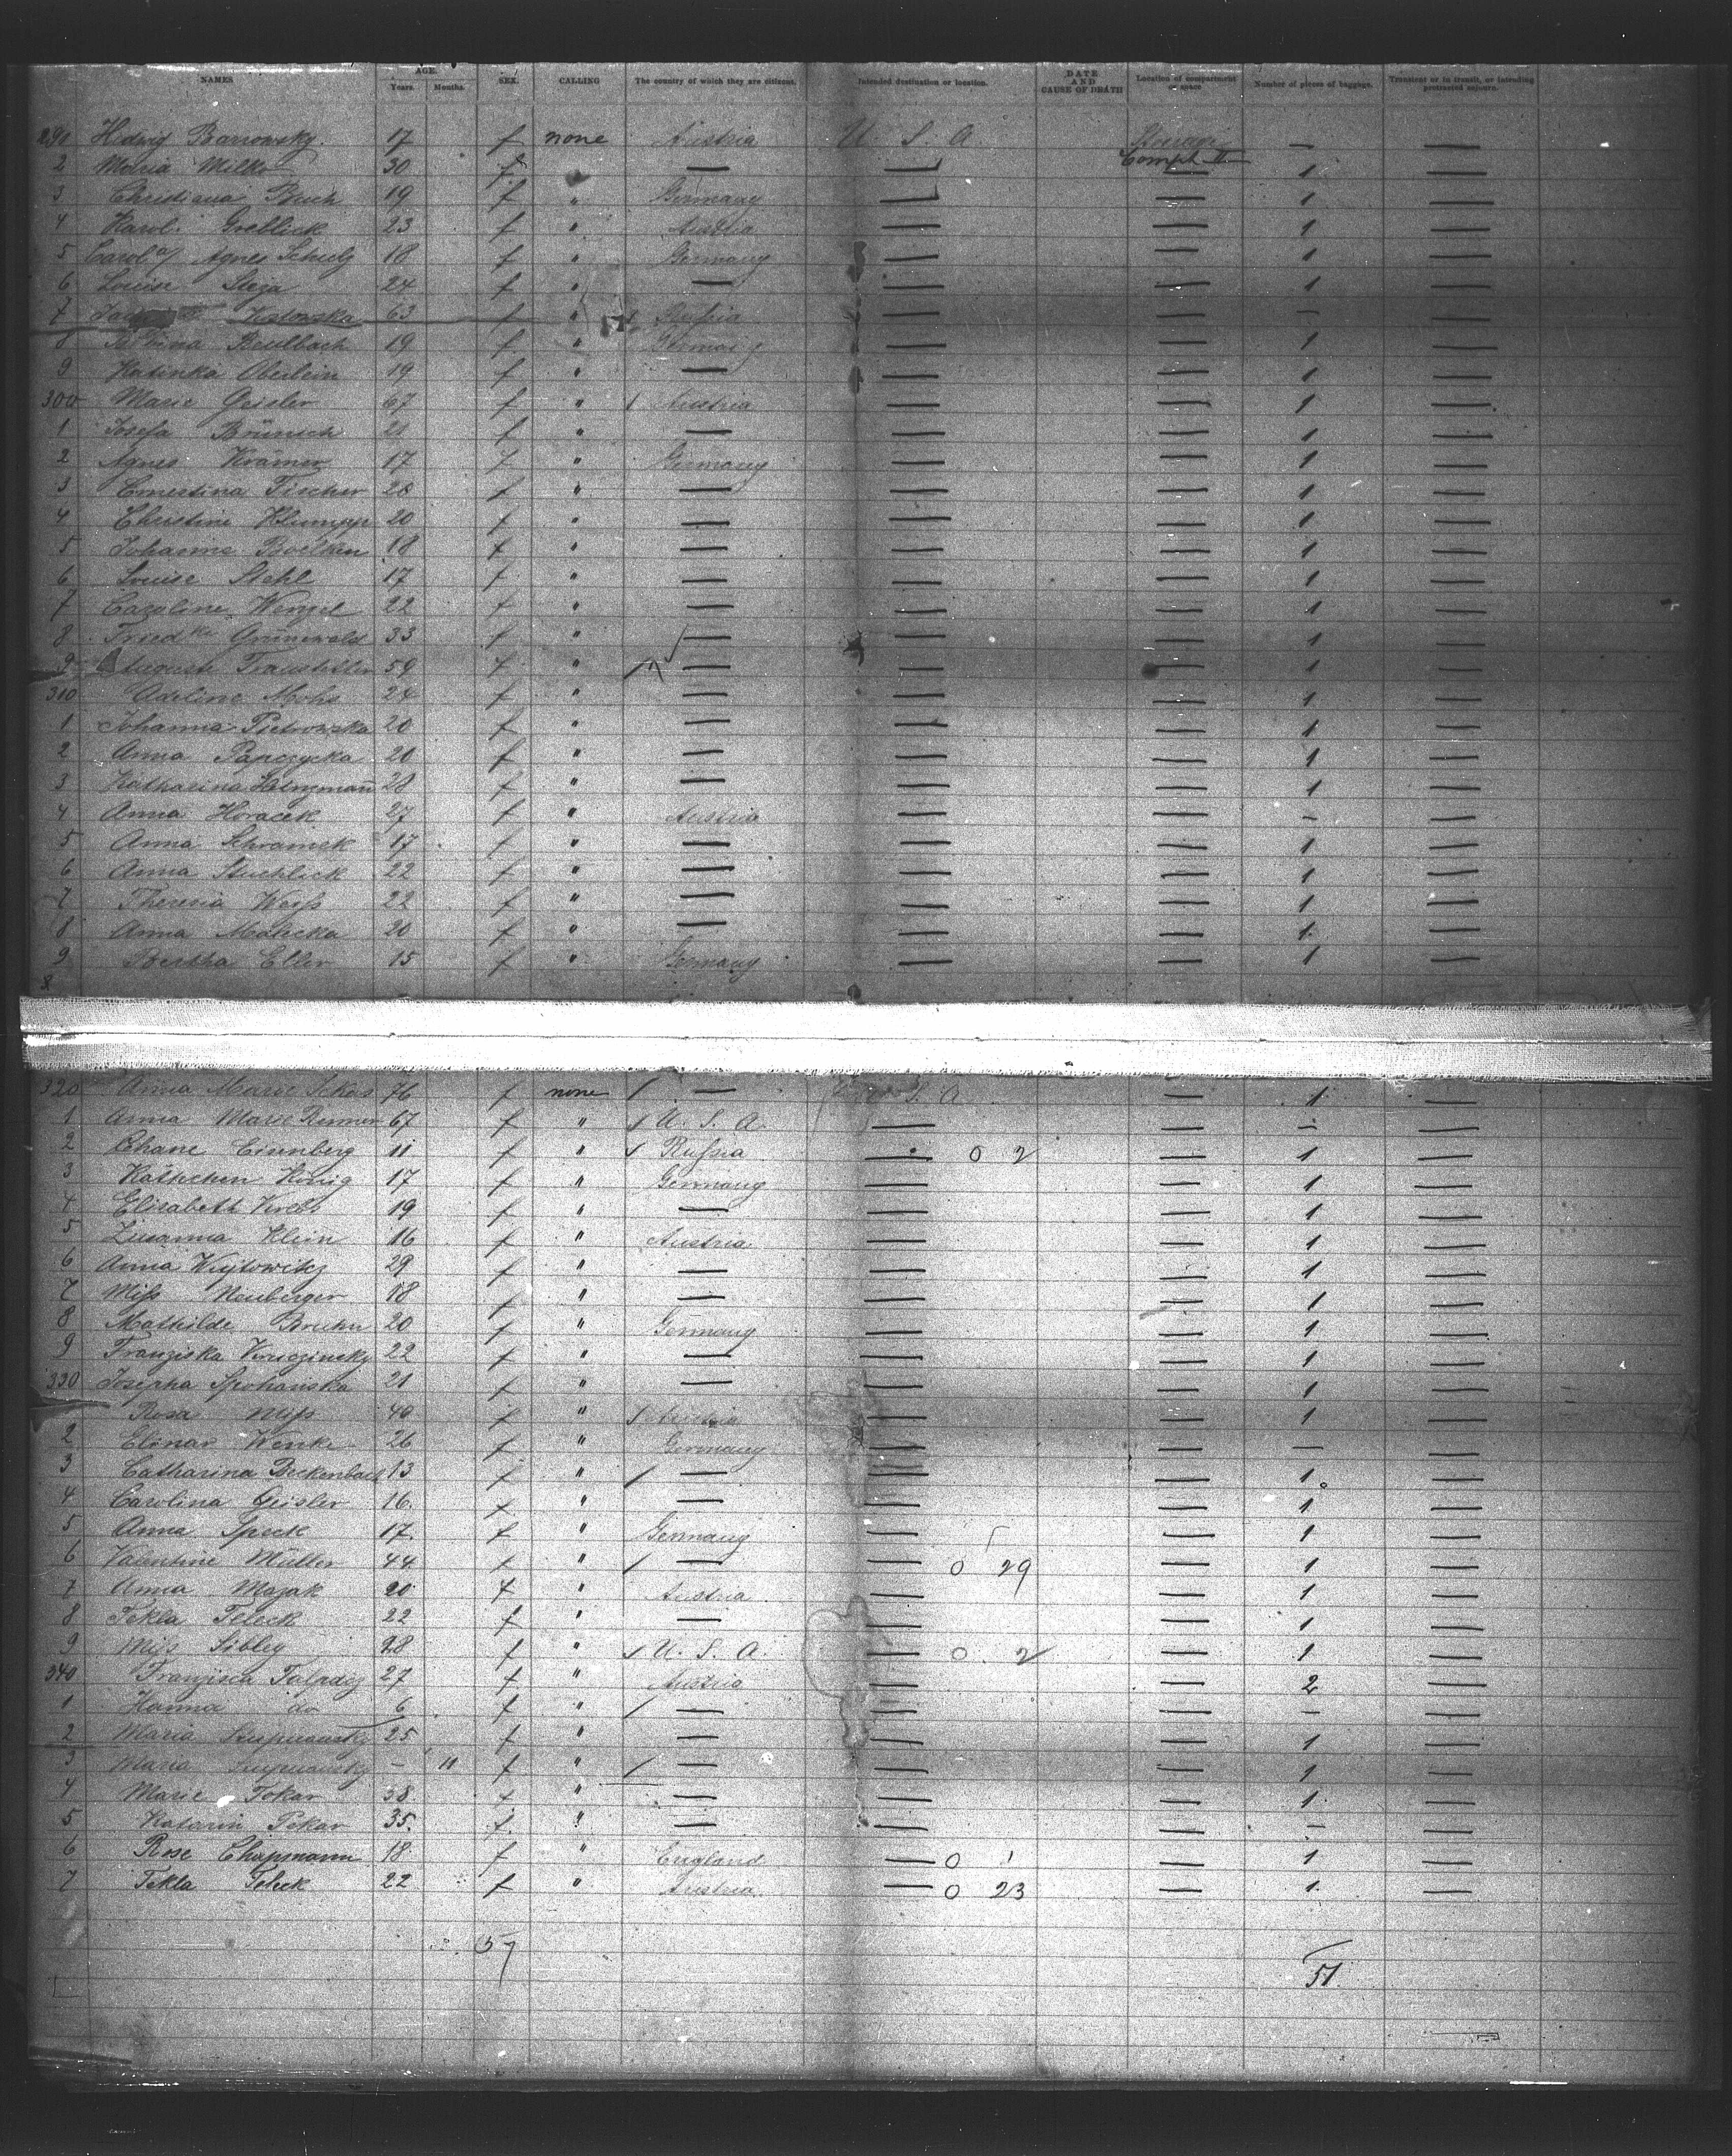 NAMES AGE. Years. Months. SEX. CALLING The country of which they are citizens. Intended destination or location. DATE AND CAUSE OF DEATH Location of compartment or space Number of pieces of baggage. Transient or in transit, or intending protracted sojourn.
Hedwig 17 f none Austria U. S. A. Steerage —
Compt II
2 Maria Milke 30 f — — — 1 —
3 Christiana Buch 19 f " Germany — — 1 —
4 Karol. Greblick 23 f " Austria — — 1 —
5 Agnes Schulz 18 f " Germany — — 1 —
6 Louise 24 f " — — — 1 —
7 63 f " Russia — — — —
8 Reulbach 19 f " Germany — — 1 —
9 Katinka Oberlein 19 f " — — — 1 —
300 Marie Geisler 67 f " Austria — — 1 —
1 Josefa Brünsch 21 f " — — — 1 —
2 Agnes Krämer 17 f " Germany — — 1 —
3 Ernestina Fischer 28 f " — — — 1 —
4 Christine Klumpp 20 f " — — — 1 —
5 Johanna 18 f " — — — 1 —
6 Louise Stehl 17 f " — — — 1 —
7 Caroline Wenzel 22 f " — — — 1 —
8 Friedke Grunewald 33 f " — — — 1 —
9 August 59 f " — — — 1 —
310 Mohs 24 f " — — — 1 —
1 Johanna Pietrowska 20 f " — — — 1 —
2 Anna Papczycka 20 f " — — — 1 —
3 Katharina 28 f " — — — 1 —
4 Anna Horacek 27 f " Austria — — — —
5 Anna Schramek 17 f " — — — 1 —
6 Anna Stuchlick 22 f " — — — 1 —
7 Theresia Weiss 22 f " — — — 1 —
8 Anna 20 f " — — — 1 —
9 Bertha Eller 15 f " Germany — — 1 —
320 Anna Marie 76 f none — S. A — 1 —
1 Anna Marie 67 f " U. S. A. — — — —
2 Chane 11 f " Russia — 0 2 — 1 —
3 Käthchen König 17 f " Germany — — 1 —
4 Elisabeth 19 f " — — — 1 —
5 Zusanna Klein 16 f " Austria — — 1 —
6 Anna 29 f " — — — 1 —
7 Miss Neuberger 18 f " — — — 1 —
8 Mathilde Bruhn 20 f " Germany — — 1 —
9 Franziska 22 f " — — — 1 —
330 Josepha 21 f " — — — 1 —
Rosa 40 f " Austria — — 1 —
2 Elinar Wenke 26 f " Germany — — — —
3 Catharina Beckenbach 13 f " — — — 1 —
4 Carolina Geisler 16 f " — — — 1 —
5 Anna Speck 17 f " Germany — — 1 —
6 Valentine Müller 44 f " — — 0 29 — 1 —
7 Anna Mazak 20 f " Austria — — 1 —
8 Tekla Teleck 22 f " — — — 1 —
9 Miss Sibley 28 f " U. S. A. — 0 2 — 1 —
340 Franzisca 27 f " Austria — 2 —
1 Hanna do 6 f " — — — — —
2 Maria 25 f " — — — 1 —
3 Maria — 11 f " — — — 1 —
4 Marie 38 f " — — — 1 —
5 Katarin Pekar 35 f " — — — — —
6 Rose Chapmann 18 f " England — 0 1 — 1 —
7 Tekla Teleck 22 f " Austria — 0 23 — 1 —
57 51